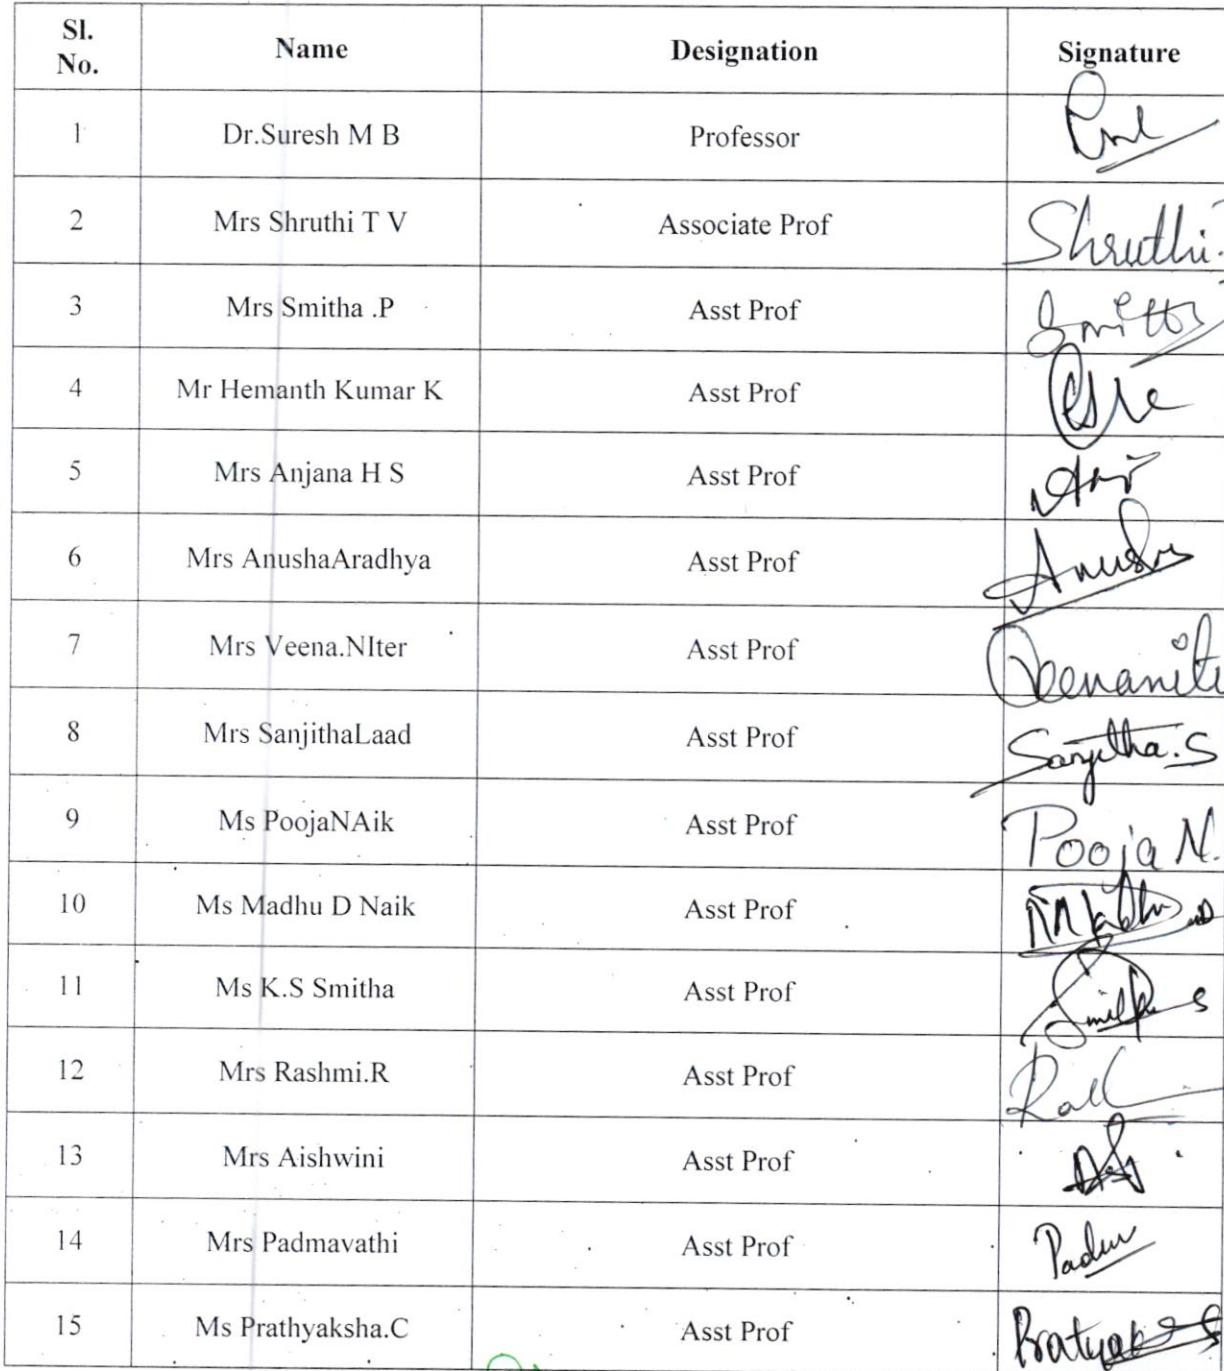 Sl. No. Name Designation Signature
1 Dr.Suresh M B Professor
2 Mrs Shruthi T V Associate Prof Shruthi.
3 Mrs Smitha .P Asst Prof Smitha
4 Mr Hemanth Kumar K Asst Prof
5 Mrs Anjana H S Asst Prof
6 Mrs AnushaAradhya Asst Prof Anusha
7 Mrs Veena.NIter Asst Prof Veenanite
8 Mrs SanjithaLaad Asst Prof Sanjitha.S
9 Ms PoojaNAik Asst Prof Pooja N.
10 Ms Madhu D Naik Asst Prof
11 Ms K.S Smitha Asst Prof
12 Mrs Rashmi.R Asst Prof
13 Mrs Aishwini Asst Prof
14 Mrs Padmavathi Asst Prof
15 Ms Prathyaksha.C Asst Prof